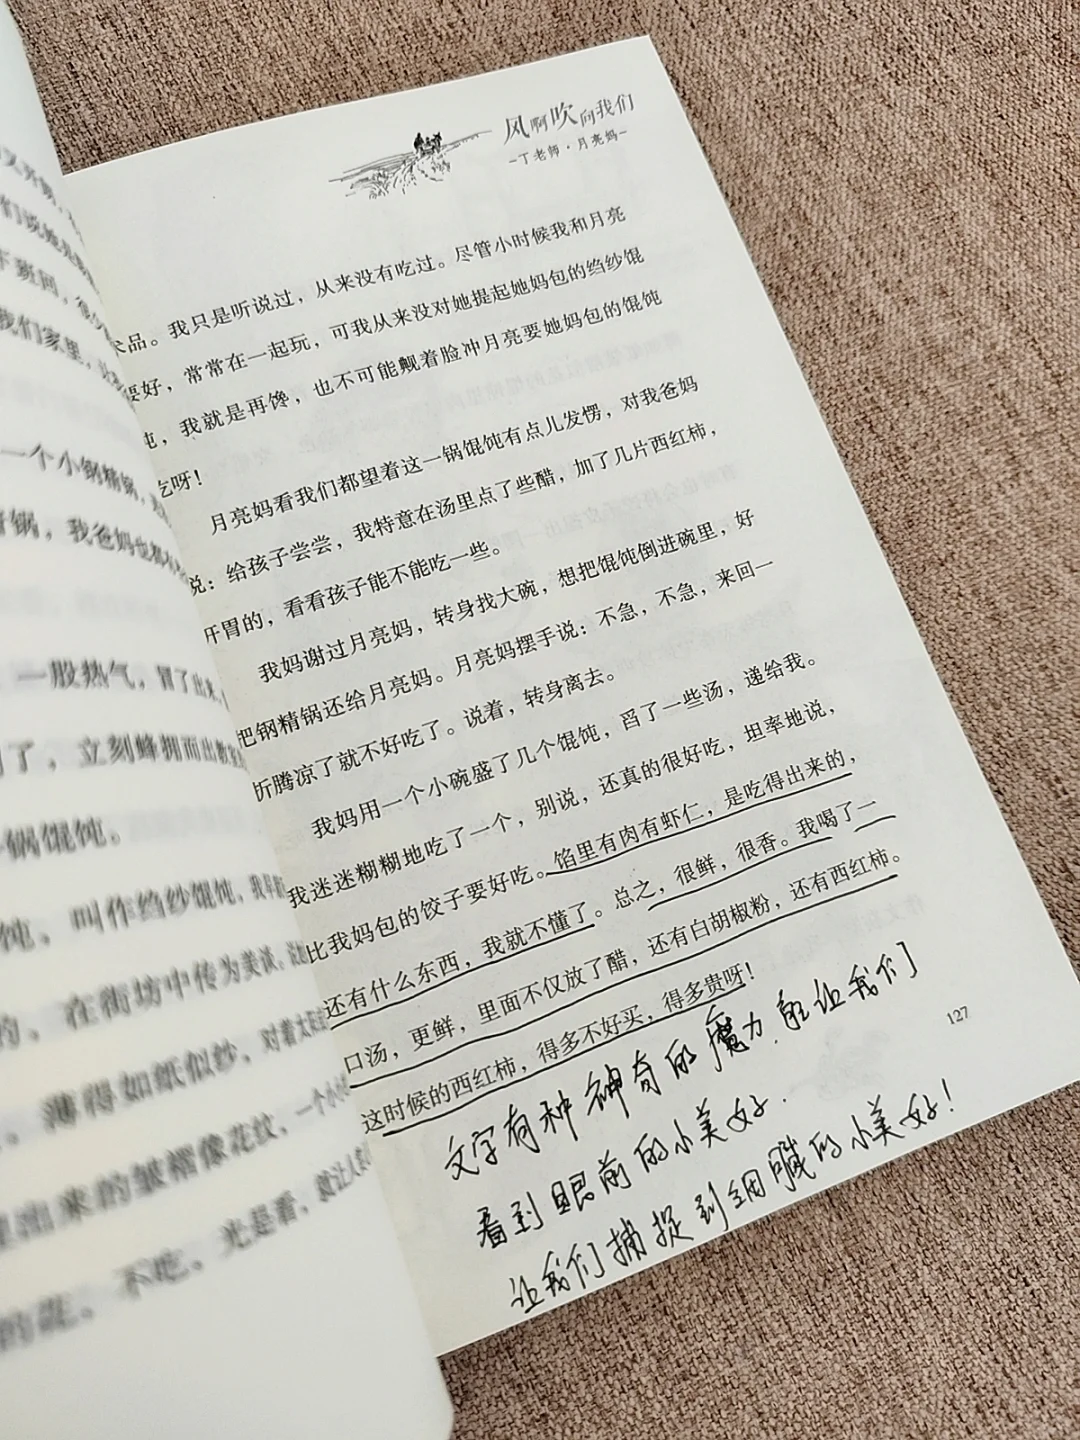 风啊吹向我们
丁老师·月亮妈
品。我只是听说过，从来没有吃过。尽管小时候我和月亮
要好，常常在一起玩，可我从来没对她提起她妈包的绉纱馄
饨，我就是再馋，也不可能觍着脸冲月亮要她妈包的馄饨
吃呀！
月亮妈看我们都望着这一锅馄饨有点儿发愣，对我爸妈
说：给孩子尝尝，我特意在汤里点了些醋，加了几片西红柿，
开胃的，看看孩子能不能吃一些。
我妈谢过月亮妈，转身找大碗，想把馄饨倒进碗里，好
把钢精锅还给月亮妈。月亮妈摆手说：不急，不急，来回一
折腾凉了就不好吃了。说着，转身离去。
我妈用一个小碗盛了几个馄饨，舀了一些汤，递给我。
我迷迷糊糊地吃了一个，别说，还真的很好吃，坦率地说，
比我妈包的饺子要好吃。馅里有肉有虾仁，是吃得出来的，
还有什么东西，我就不懂了。总之，很鲜，很香。我喝了一
口汤，更鲜，里面不仅放了醋，还有白胡椒粉，还有西红柿。
这时候的西红柿，得多不好买，得多贵呀！
127
文字有种神奇的魔力，能让我们
看到眼前的小美好.
让我们捕捉到细腻的小美好！
们说她是
下班回，
我们家里，
一个小锅精锅，
锅，我爸妈也都
一股热气，冒了出来，
了，立刻蜂拥而出教室
锅馄饨。
饨，叫作绉纱馄饨，
的，在街坊中传为美谈，
，薄得如纸似纱，对着太
出来的皱褶像花纹，一个小
的花。不吃，光是看，就让人